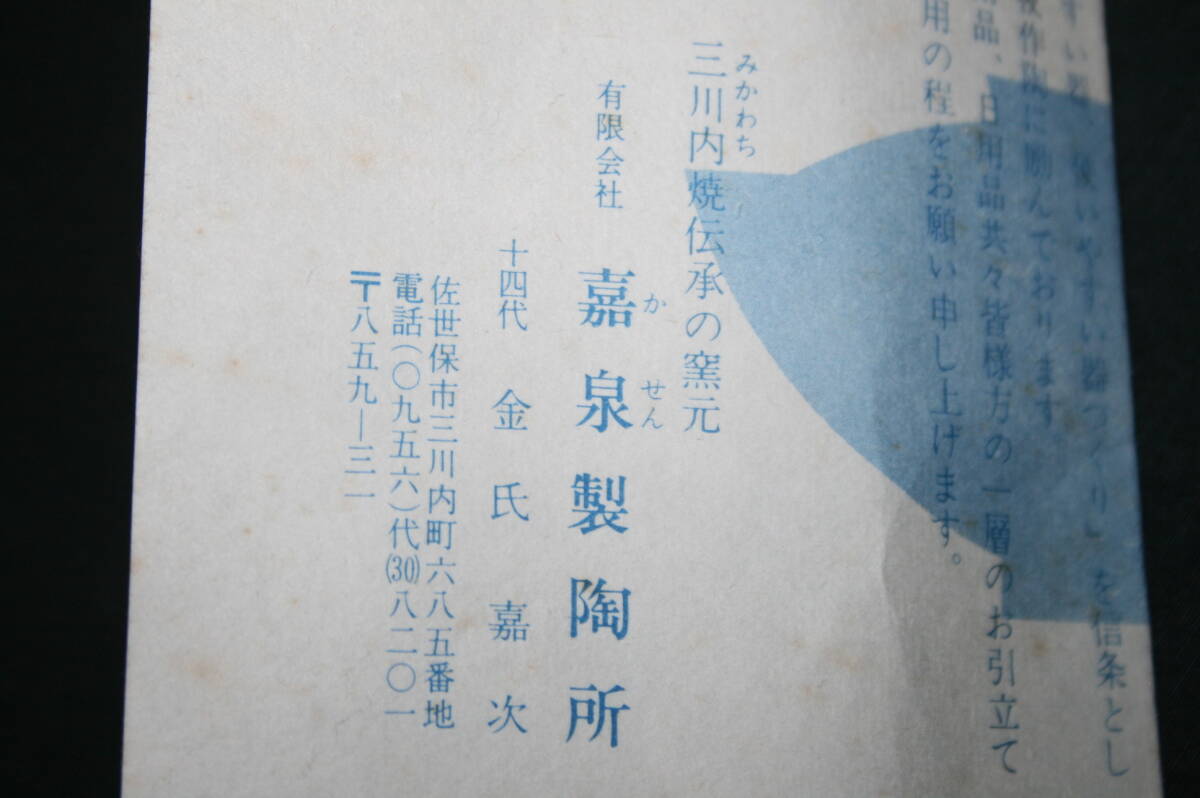 すい器、使いやすい器つくり」を信条とし
作陶に励んでおります
品、日用品共々皆様方の一層のお引立て
用の程をお願い申し上げます。
みかわち
三川内焼伝承の窯元
かせん
有限会社 嘉泉製陶所
十四代 金氏嘉次
佐世保市三川内町六八五番地
電話(〇九五六)代(30)八二〇一
〒八五九―三一